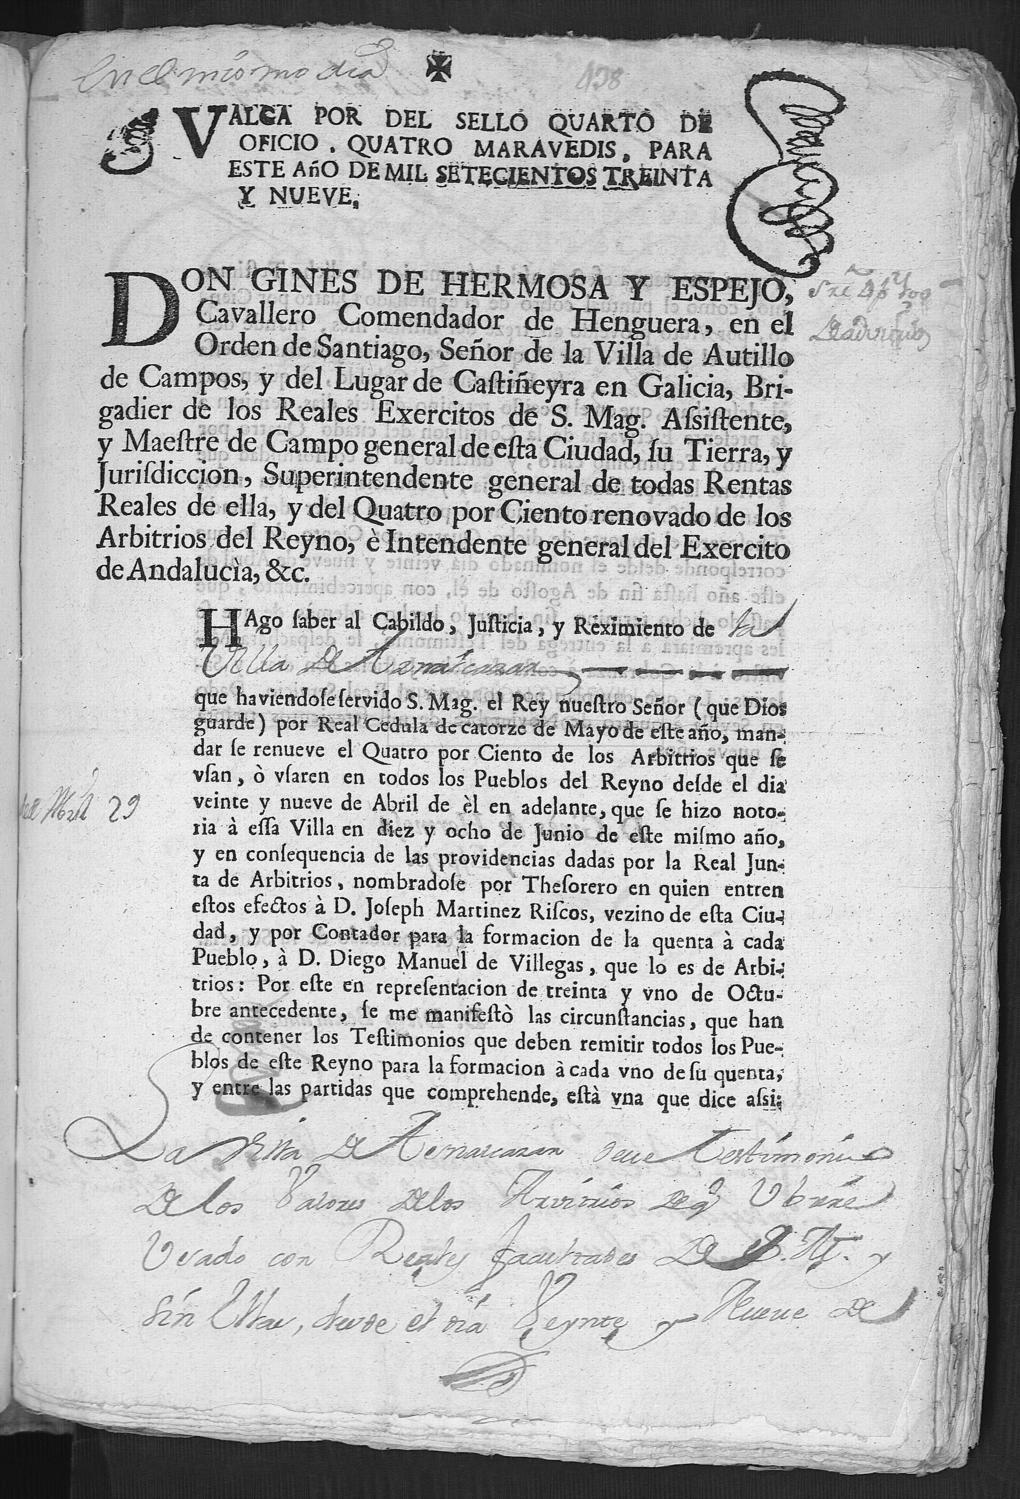 En el mismo dia
138
VALGA POR DEL SELLO QUARTO DE
OFICIO, QUATRO MARAVEDIS, PARA
ESTE AñO DE MIL SETECIENTOS TREINTA
Y NUEVE.
DON GINES DE HERMOSA Y ESPEJO,
Cavallero Comendador de Henguera, en el
Orden de Santiago, Señor de la Villa de Autillo
de Campos, y del Lugar de Caſtiñeyra en Galicia, Bri-
gadier de los Reales Exercitos de S. Mag. Aſsiſtente,
y Maeſtre de Campo general de eſta Ciudad, ſu Tierra, y
Juriſdiccion, Superintendente general de todas Rentas
Reales de ella, y del Quatro por Ciento renovado de los
Arbitrios del Reyno, è Intendente general del Exercito
de Andalucia, &c.
HAgo ſaber al Cabildo, Juſticia, y Reximiento de la
Villa de Aznalcazar
que haviendoſe ſervido S. Mag. el Rey nueſtro Señor (que Dios
guarde) por Real Cedula de catorze de Mayo de eſte año, man-
dar ſe renueve el Quatro por Ciento de los Arbitrios que ſe
vſan, ò vſaren en todos los Pueblos del Reyno deſde el dia
veinte y nueve de Abril de èl en adelante, que ſe hizo noto-
ria à eſſa Villa en diez y ocho de Junio de eſte miſmo año,
y en conſequencia de las providencias dadas por la Real Jun-
ta de Arbitrios, nombradoſe por Theſorero en quien entren
eſtos efectos à D. Joſeph Martinez Riſcos, vezino de eſta Ciu-
dad, y por Contador para la formacion de la quenta à cada
Pueblo, à D. Diego Manuel de Villegas, que lo es de Arbi-
trios: Por eſte en repreſentacion de treinta y vno de Octu-
bre antecedente, ſe me manifeſtò las circunſtancias, que han
de contener los Teſtimonios que deben remitir todos los Pue-
blos de eſte Reyno para la formacion à cada vno de ſu quenta,
y entre las partidas que comprehende, eſtà vna que dice aſsi:
29
La Villa de Aznalcazar deve Testimonio
de los Valores de los Arvitrios de q Vbiere
Vsado con Reales facultades de S. M. y
sin ellas, desde el dia Veynte y Nueve de